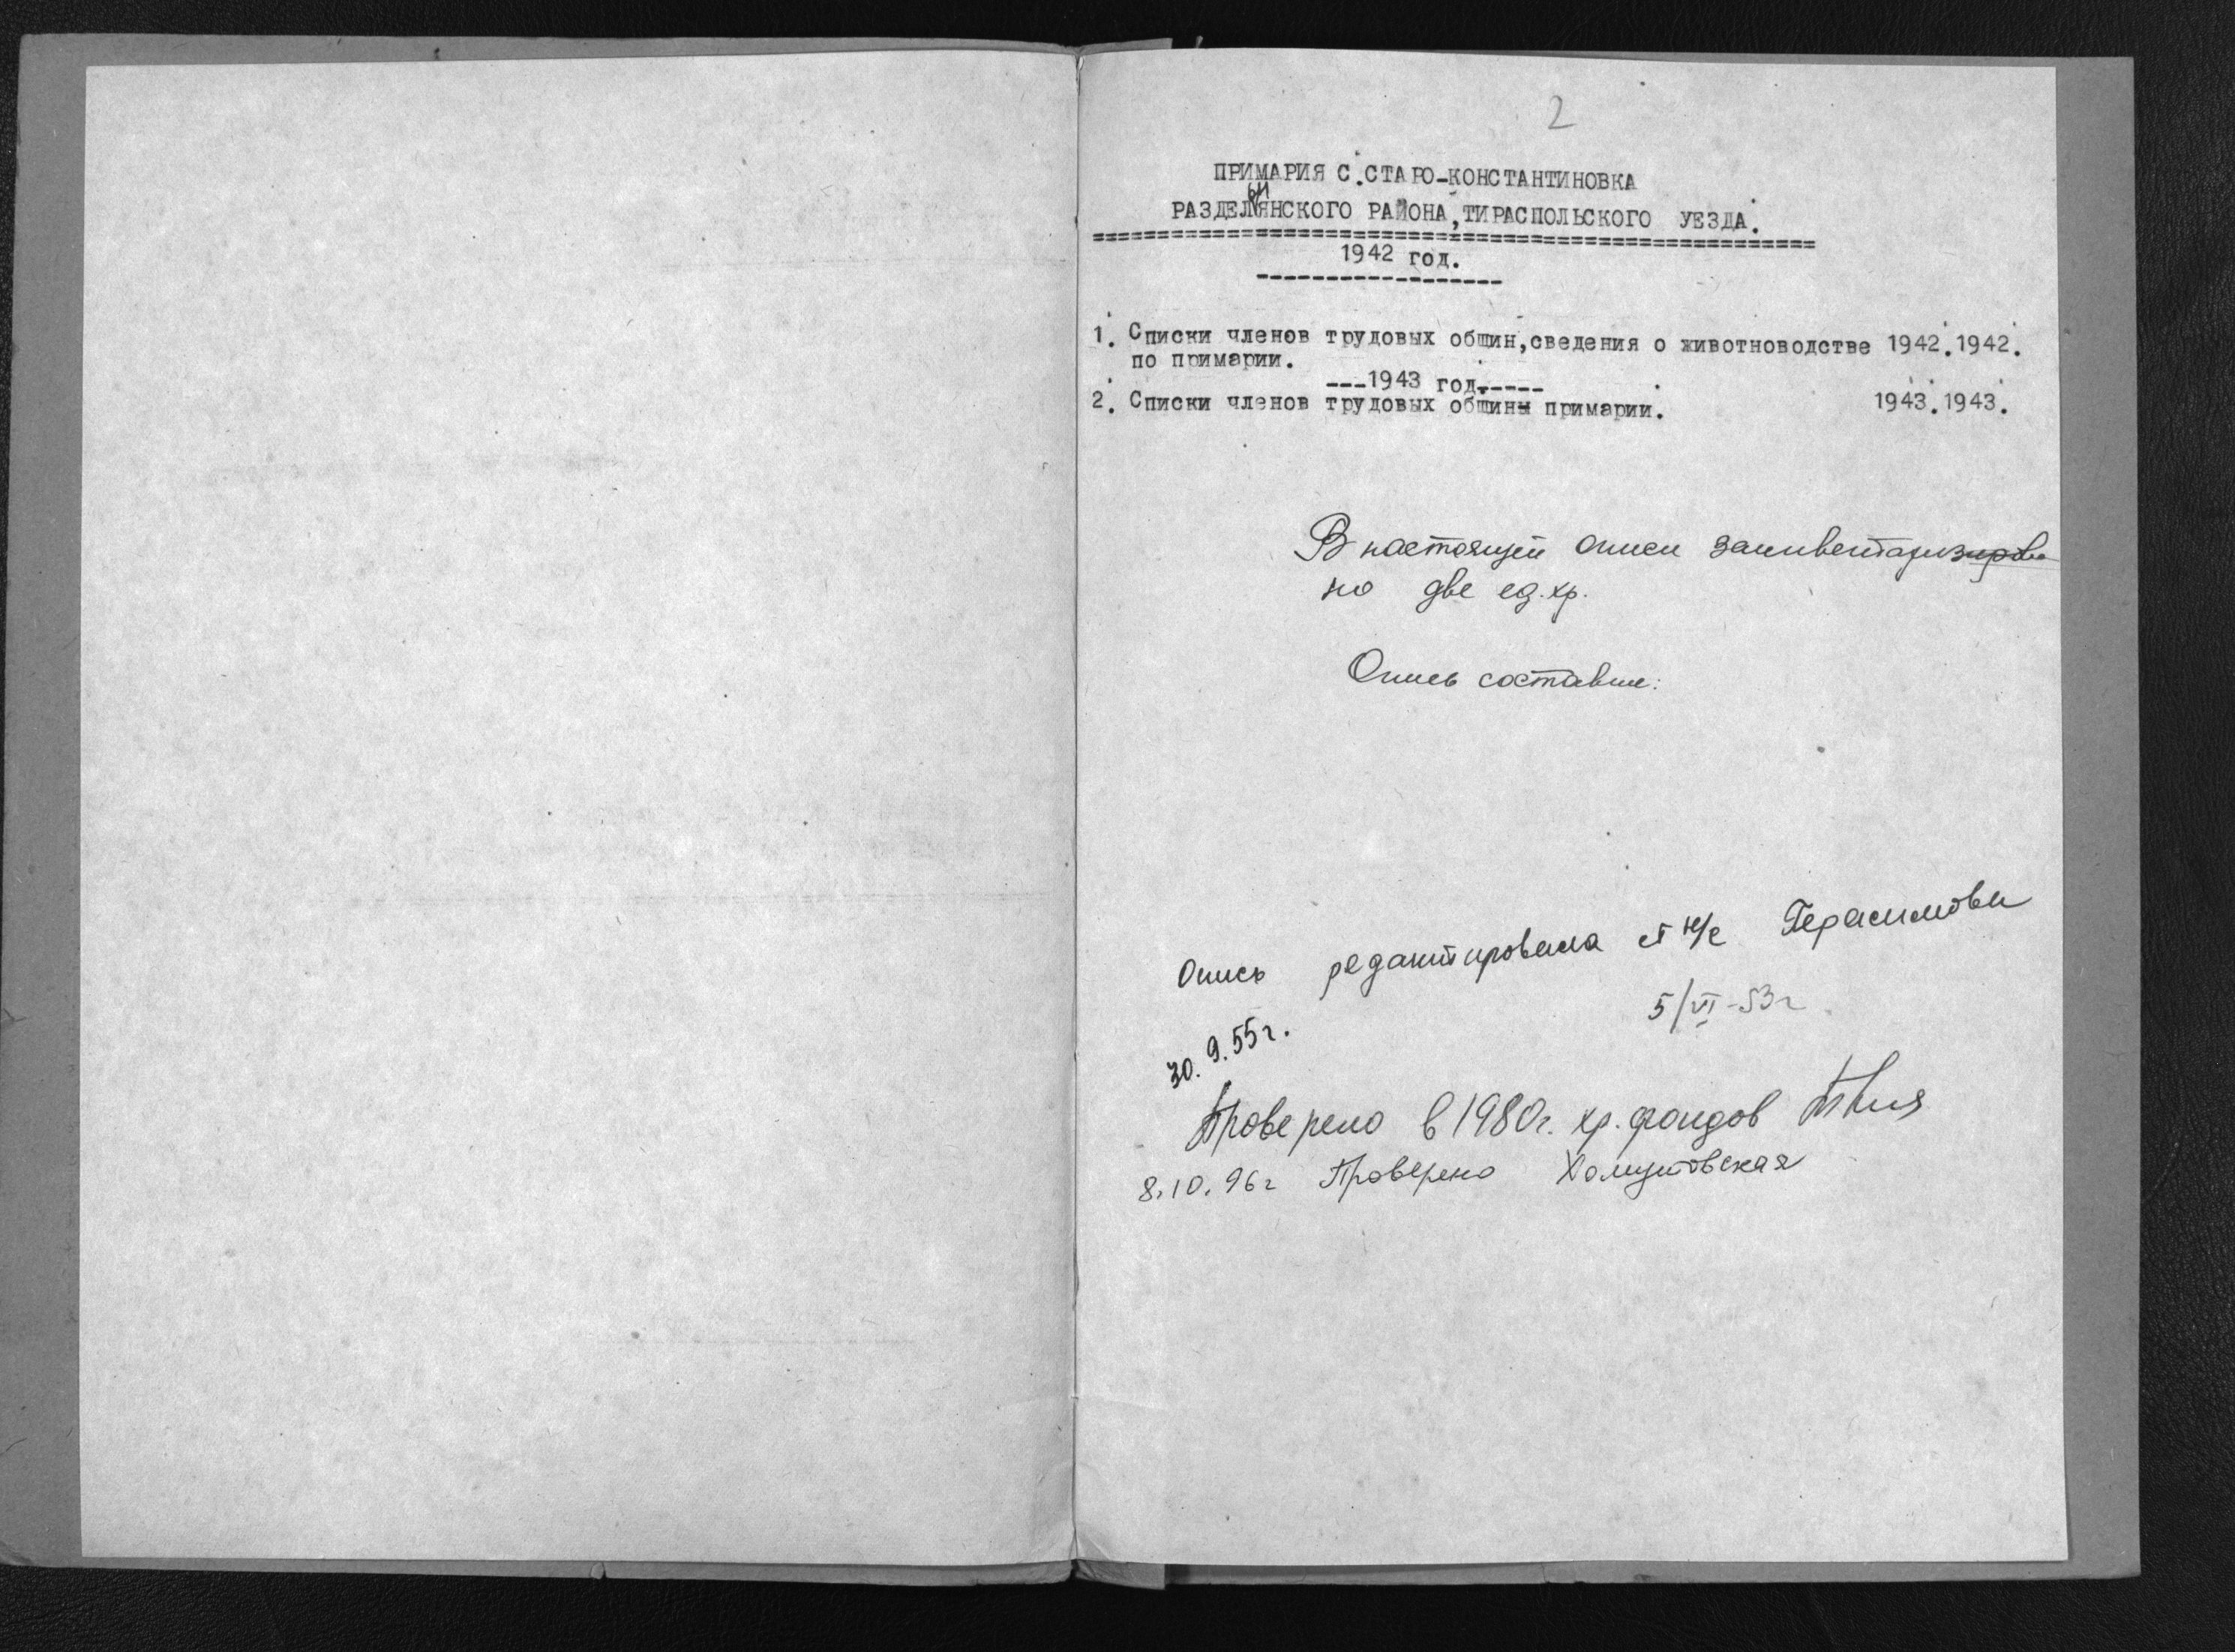 2
ПРИМАРИЯ С.СТАРО-КОНСТАНТИНОВКА
ьн
РАЗДЕЛЯНСКОГО РАЙОНА,ТИРАСПОЛЬСКОГО УЕЗДА.
1942 год.
1. Списки членов трудовых общин,сведения о животноводстве 1942.1942.
по примарии.
---1943 год.----
2. Списки членов трудовых общины примарии. 1943.1943.
В настоящей описи заинвентаризирова
но две ед.хр.
Опись составил:
Опись редактировала ст н/с Герасимова
5/VI-53г
30.9.55г.
Проверено в 1980г. хр.фондов
8.10.96г Проверено Хомутовская